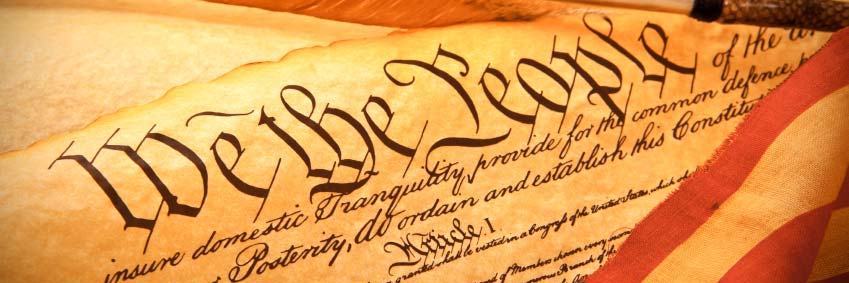 We the People of the Un
insure domestic Tranquility, provide for the common defence, p
Posterity, do ordain and establish this Constitu
Article I.
granted shall be vested in a Congress of the United States, which
of Members chosen every
Branch of the